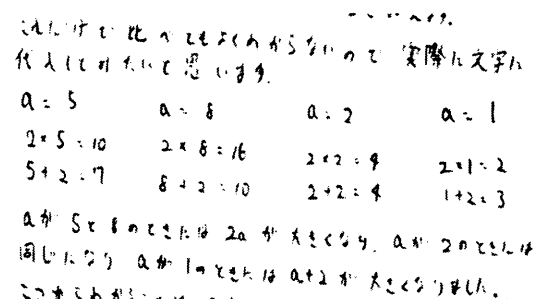 これだけで比べてもよくわからないので実際に文字に
代入してみたいと思います。
a=5 a=8 a=2 a=1
2×5=10 2×8=16 2×2=4 2×1=2
5+2=7 8+2=10 2+2=4 1+2=3
aが5と8のときには2aが大きくなり、aが2のときには
同じになり aが1のときには a+2が大きくなりました。